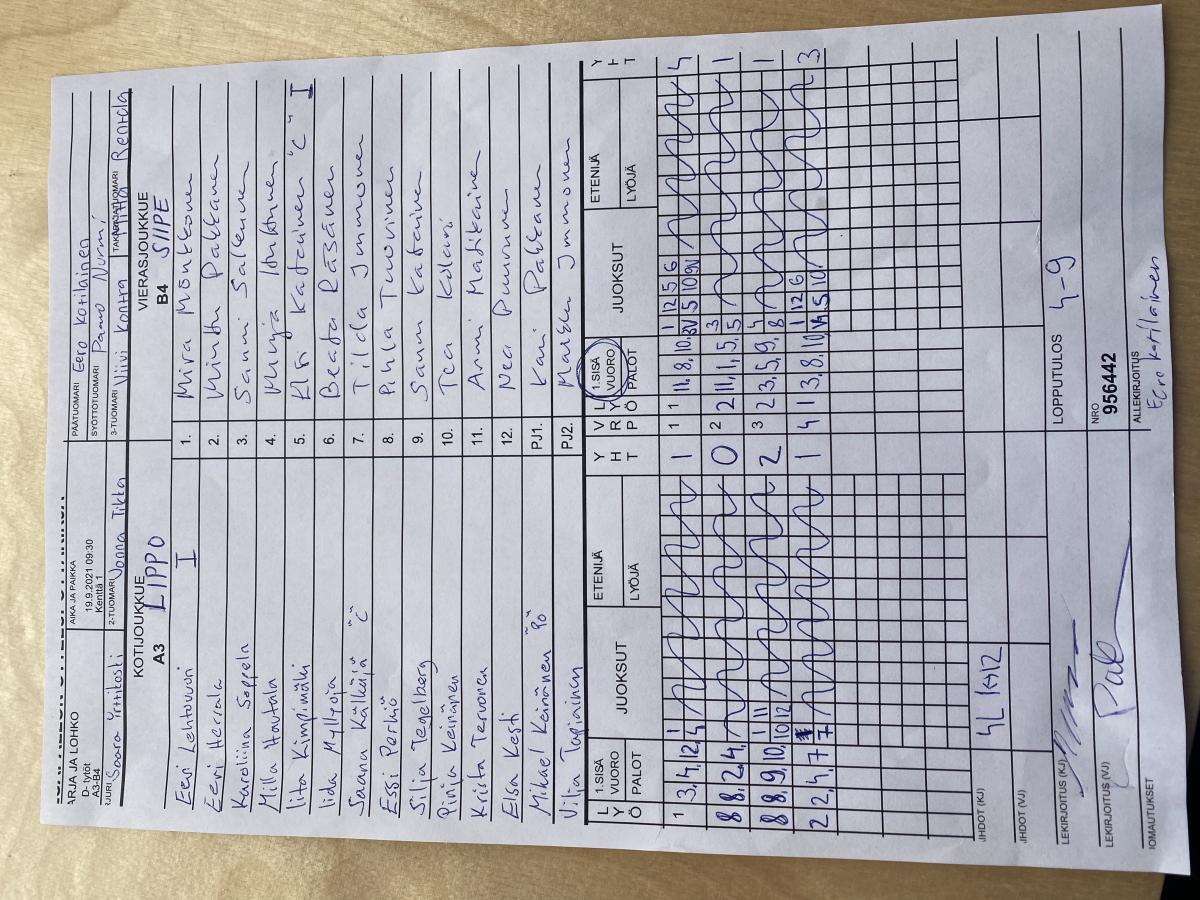 ARJA JA LOHKO
D- tytöt
A3-B4
AIKA JA PAIKKA
19.9.2021 09:30
Kenttä 1
PÄÄTUOMARI Eero Kotilainen
SYÖTTÖTUOMARI Paavo Nurmi
2-TUOMARI Jonna Tikka
3-TUOMARI Viivi Kontra
KOTIJOUKKUE
A3 LIPPO
VIERASJOUKKUE
B4 SIIPE
Eevi Lehtovuori I 1. Mira Mönkkönen
Eevi Herrala 2. Minttu Pakkanen
Karoliina Seppelä 3. Sanni Salkunen
Milla Hautala 4.
Iita Kimpimäki 5. Elsi Katainen "C" I
Iida Myllyoja 6. Beata Räsänen
Saana Källkäjä "C" 7. Tilda Immonen
Essi Perkiö 8. Pihla Tuovinen
Silja Tegelberg 9. Sanni Kataine
Pinja Keinänen 10. Tea Kolari
Krista Tervonen 11. Anni Matikaine
Elsa Kesti 12. Nea Puurunen
Mikael Keinänen "PÖ" PJ1. Kari Pakkanen
Vilja Tapiainen PJ2. Immonen
LYÖ 1.SISÄ VUORO PALOT JUOKSUT ETENIJÄ LYÖJÄ YHT VRP LYÖ 1.SISÄ VUORO PALOT JUOKSUT ETENIJÄ LYÖJÄ YHT
1 3, 4, 12, 1 4 1 1 1 11, 8, 10, 1 12 5 6 3V 5 10 9V 4
8 8, 2, 4, 0 2 2 11, 1, 5, 3 5 1
8 8, 9, 10, 11 11 10 12 2 3 2 3, 5, 9, 4 8 1
2 2, 4, 7 7 1 4 1 3, 8, 10, 1 12 6 5 10 3
4L
LOPPUTULOS 4-9
LEKIRJOITUS (KJ)
LEKIRJOITUS (VJ)
NRO
956442
ALLEKIRJOITUS
Eero Kotilainen